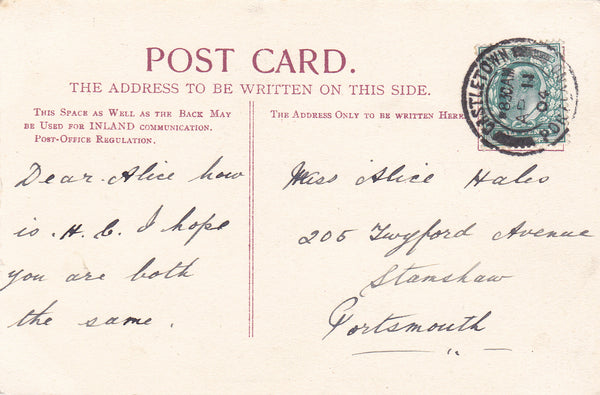 POST CARD.
THE ADDRESS TO BE WRITTEN ON THIS SIDE.
THIS SPACE AS WELL AS THE BACK MAY
BE USED FOR INLAND COMMUNICATION.
POST-OFFICE REGULATION.
Dear Alice how
is. H. C. I hope
you are both
the same.
THE ADDRESS ONLY TO BE WRITTEN HERE
Miss Alice Hales
205 Twyford Avenue
Stamshaw
Portsmouth
CASTLETOWN
8.30AM
11
04